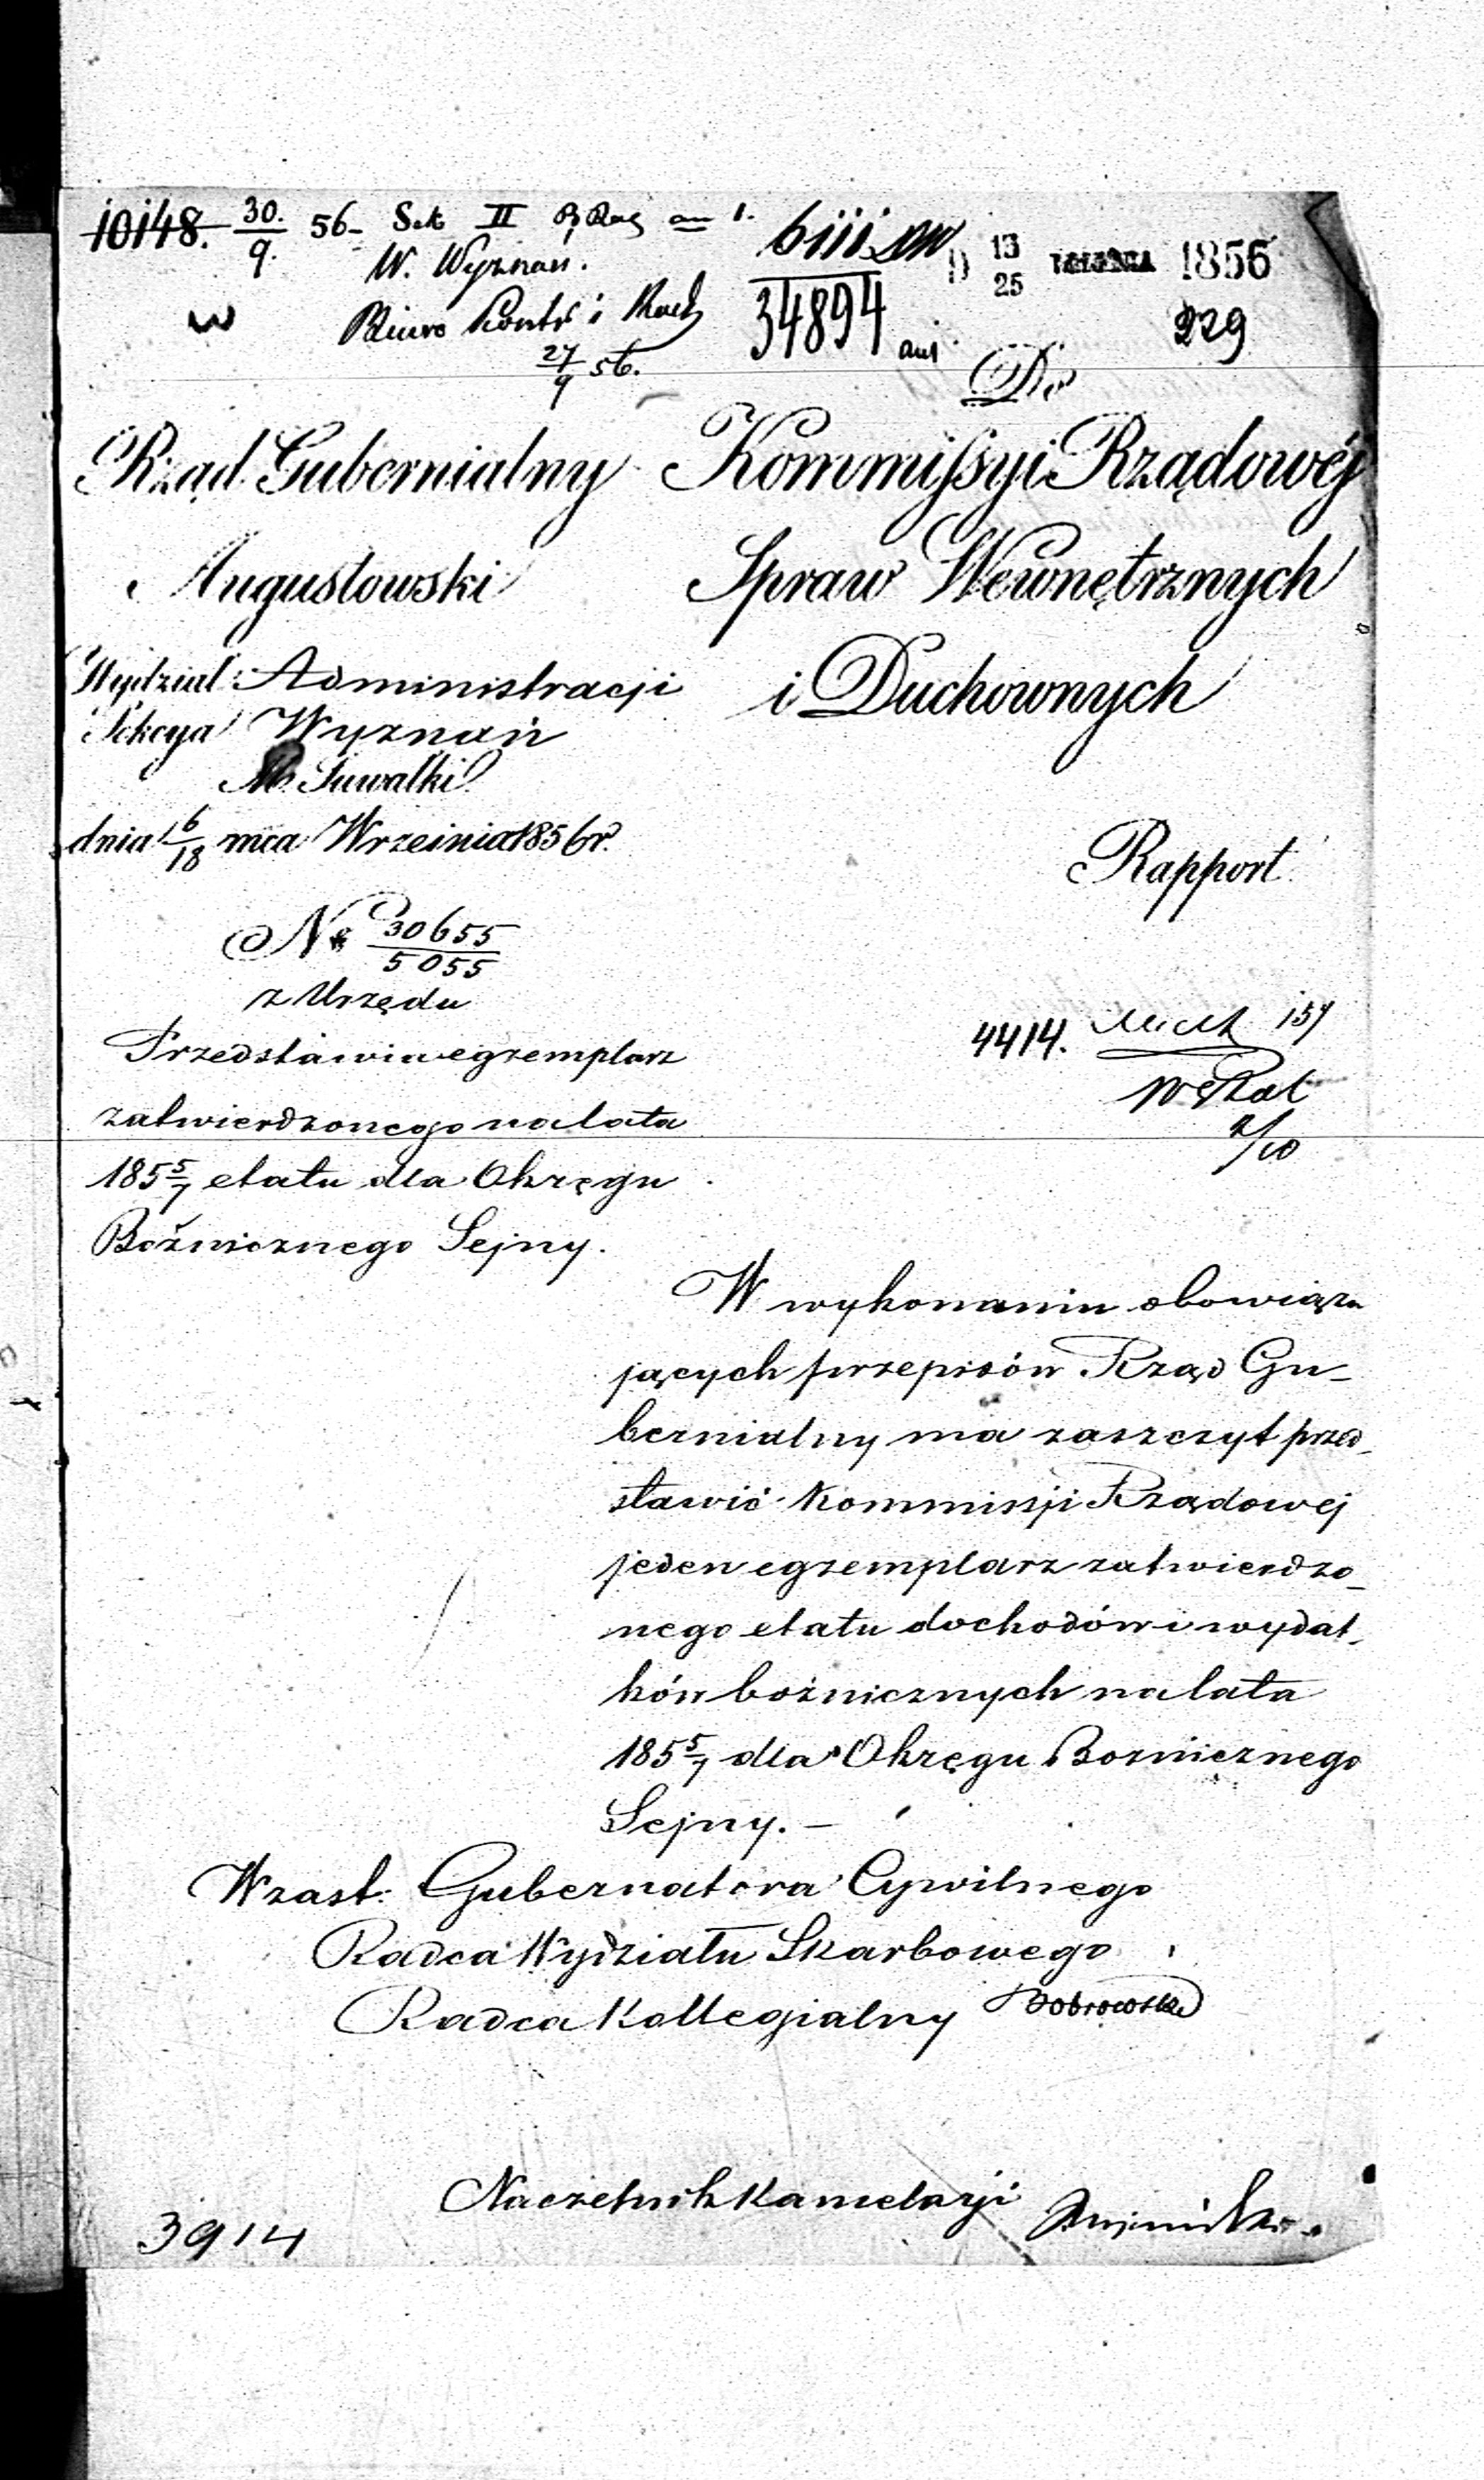 10148. 30./9. 56 Sek II
W. Wyznań.
Biuro Kontr i Rach
27/9 56.
34894
13/25 WRZEŚNIA 1856
229
Do
Kommissyi Rządowéj
Spraw Wewnętrznych
i Duchownych
Rząd Gubernialny
Augustowski
Wydział: Administracji
Sekcya Wyznań
M. Suwałki
dnia 6/18 mca Września 1856 r.
Rapport
No 30655/5055
z Urzędu
Przedstawia egzemplarz
zatwierdzonego na lata
185 5/7 etatu dla Okręgu
Bóżnicznego Sejny.
4414.
2/10
W wykonaniu obowiązu
jących przepisów Rząd Gu-
bernialny ma zaszczyt przed-
stawić Kommissji Rządowej
jeden egzemplarz zatwierdzo-
nego etatu dochodów i wydat-
ków bóżnicznych na lata
185 5/7 dla Okręgu Bożnicznego
Sejny. -
W zast: Gubernatora Cywilnego
Radca Wydziału Skarbowego
Radca Kollegialny Dobrowolski
Naczelnik Kancelarji
3914